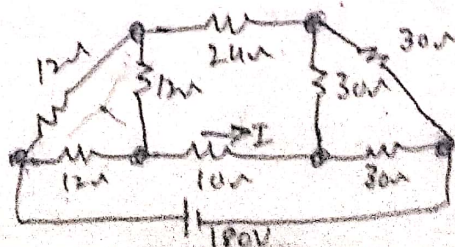 12Ω
24Ω
30Ω
12Ω
30Ω
I
12Ω
10Ω
30Ω
180V